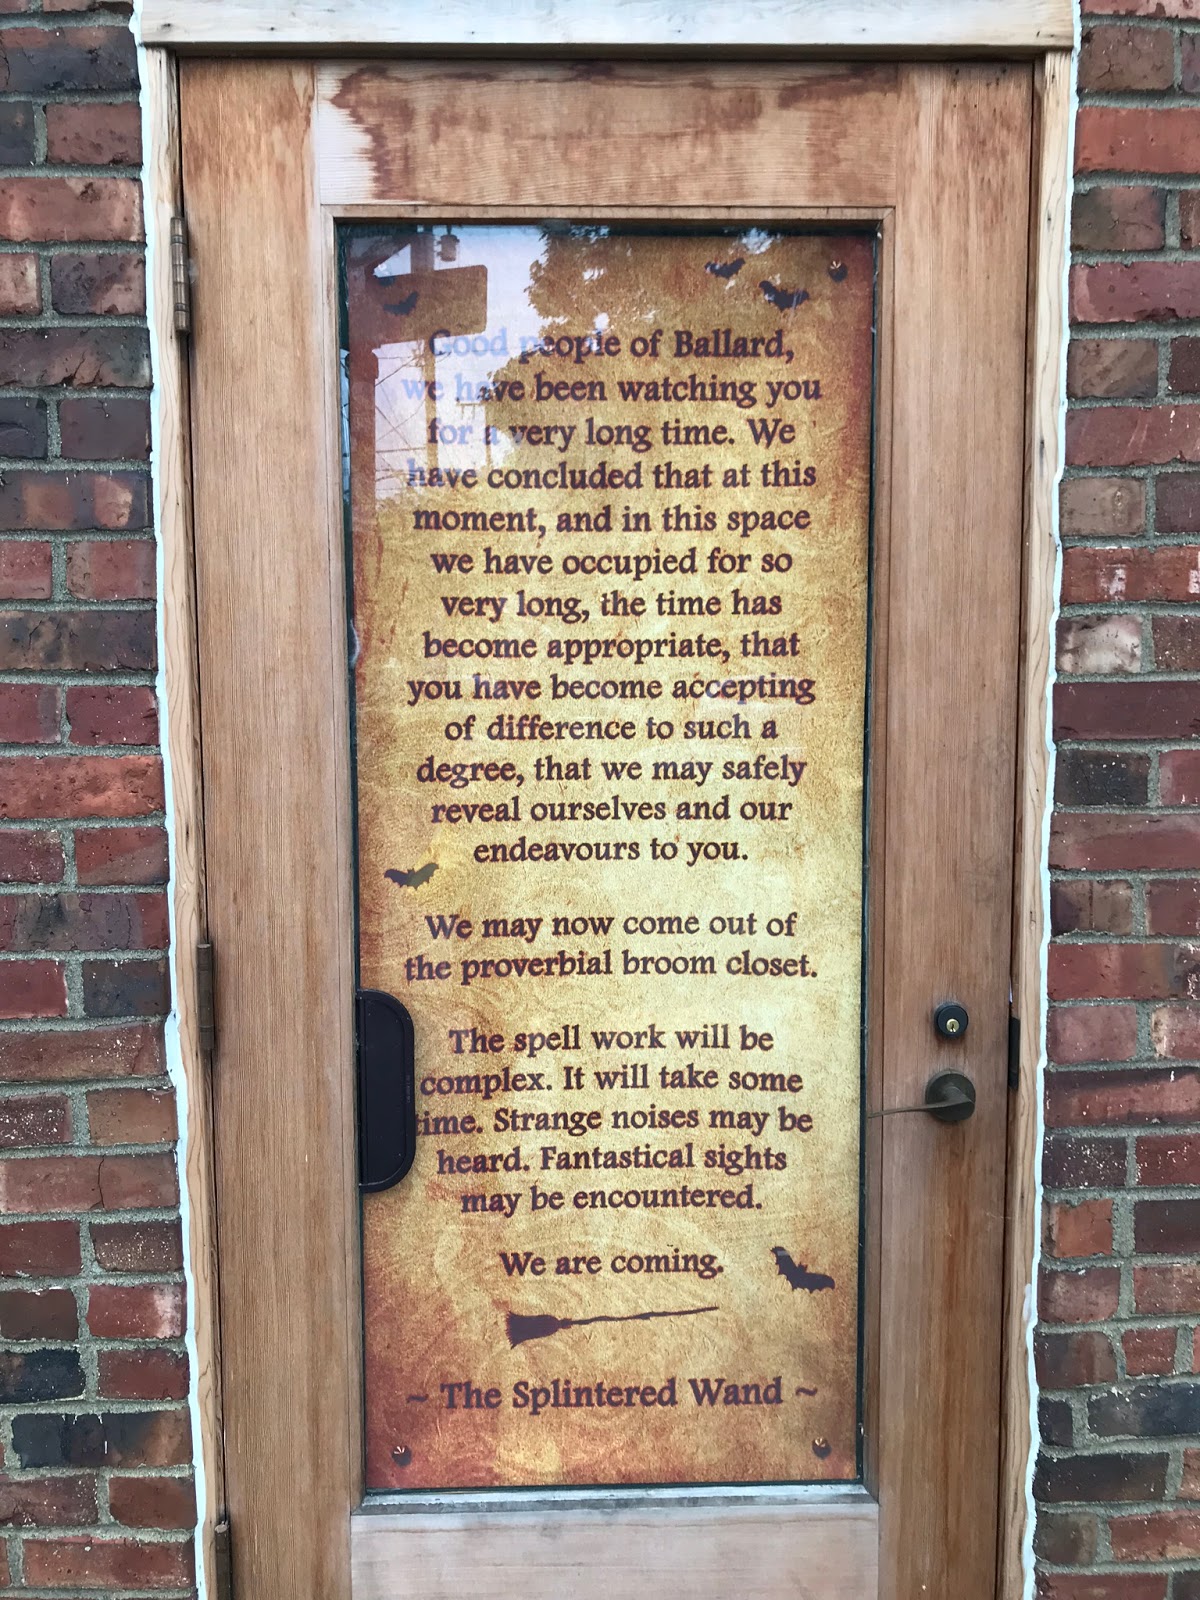 Good people of Ballard,
we have been watching you
for a very long time. We
have concluded that at this
moment, and in this space
we have occupied for so
very long, the time has
become appropriate, that
you have become accepting
of difference to such a
degree, that we may safely
reveal ourselves and our
endeavours to you.
We may now come out of
the proverbial broom closet.
The spell work will be
complex. It will take some
time. Strange noises may be
heard. Fantastical sights
may be encountered.
We are coming.
~ The Splintered Wand ~